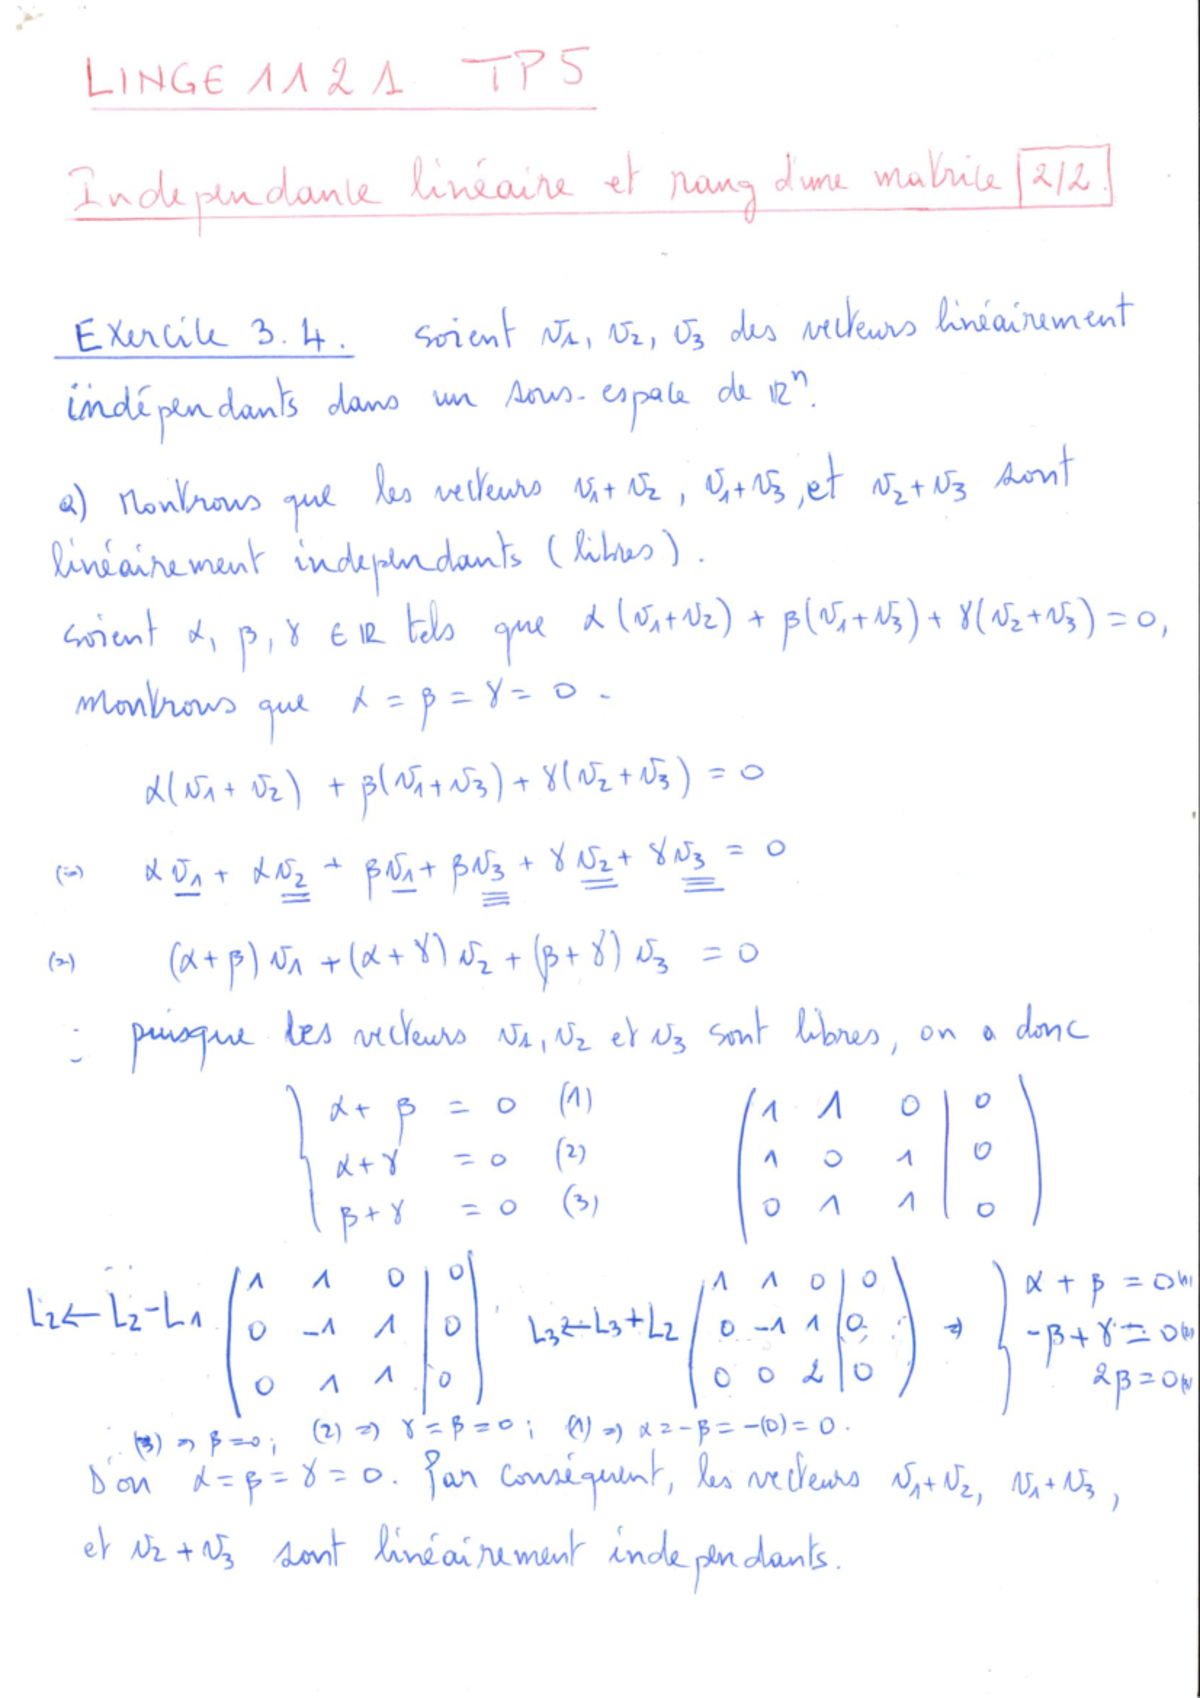 LINGE 1121 TP5
Independance linéaire et rang d'une matrice 2/2.
Exercice 3.4. soient v1, v2, v3 des vecteurs linéairement
indépendants dans un sous-espace de ℝⁿ.
a) Montrons que les vecteurs v1+v2, v1+v3, et v2+v3 sont
linéairement independants (libres).
soient α, β, γ ∈ ℝ tels que α(v1+v2) + β(v1+v3) + γ(v2+v3) = 0,
montrons que α = β = γ = 0.
α(v1+v2) + β(v1+v3) + γ(v2+v3) = 0
(=) αv1 + αv2 + βv1 + βv3 + γv2 + γv3 = 0
(=) (α+β)v1 + (α+γ)v2 + (β+γ)v3 = 0
puisque les vecteurs v1, v2 et v3 sont libres, on a donc
{ α+β = 0 (1) ( 1 1 0 | 0 )
α+γ = 0 (2) 1 0 1 | 0
β+γ = 0 (3) 0 1 1 | 0
( 1 1 0 | 0 ) ( 1 1 0 | 0 ) { α + β = 0 (1)
L2←L2-L1 0 -1 1 | 0 L3←L3+L2 0 -1 1 | 0 => -β+γ = 0 (2)
0 1 1 | 0 0 0 2 | 0 2β = 0 (3)
(3) => β=0; (2) => γ=β=0; (1) => α=-β=-(0)=0.
D'on α=β=γ=0. Par conséquent, les vecteurs v1+v2, v1+v3,
et v2+v3 sont linéairement independants.